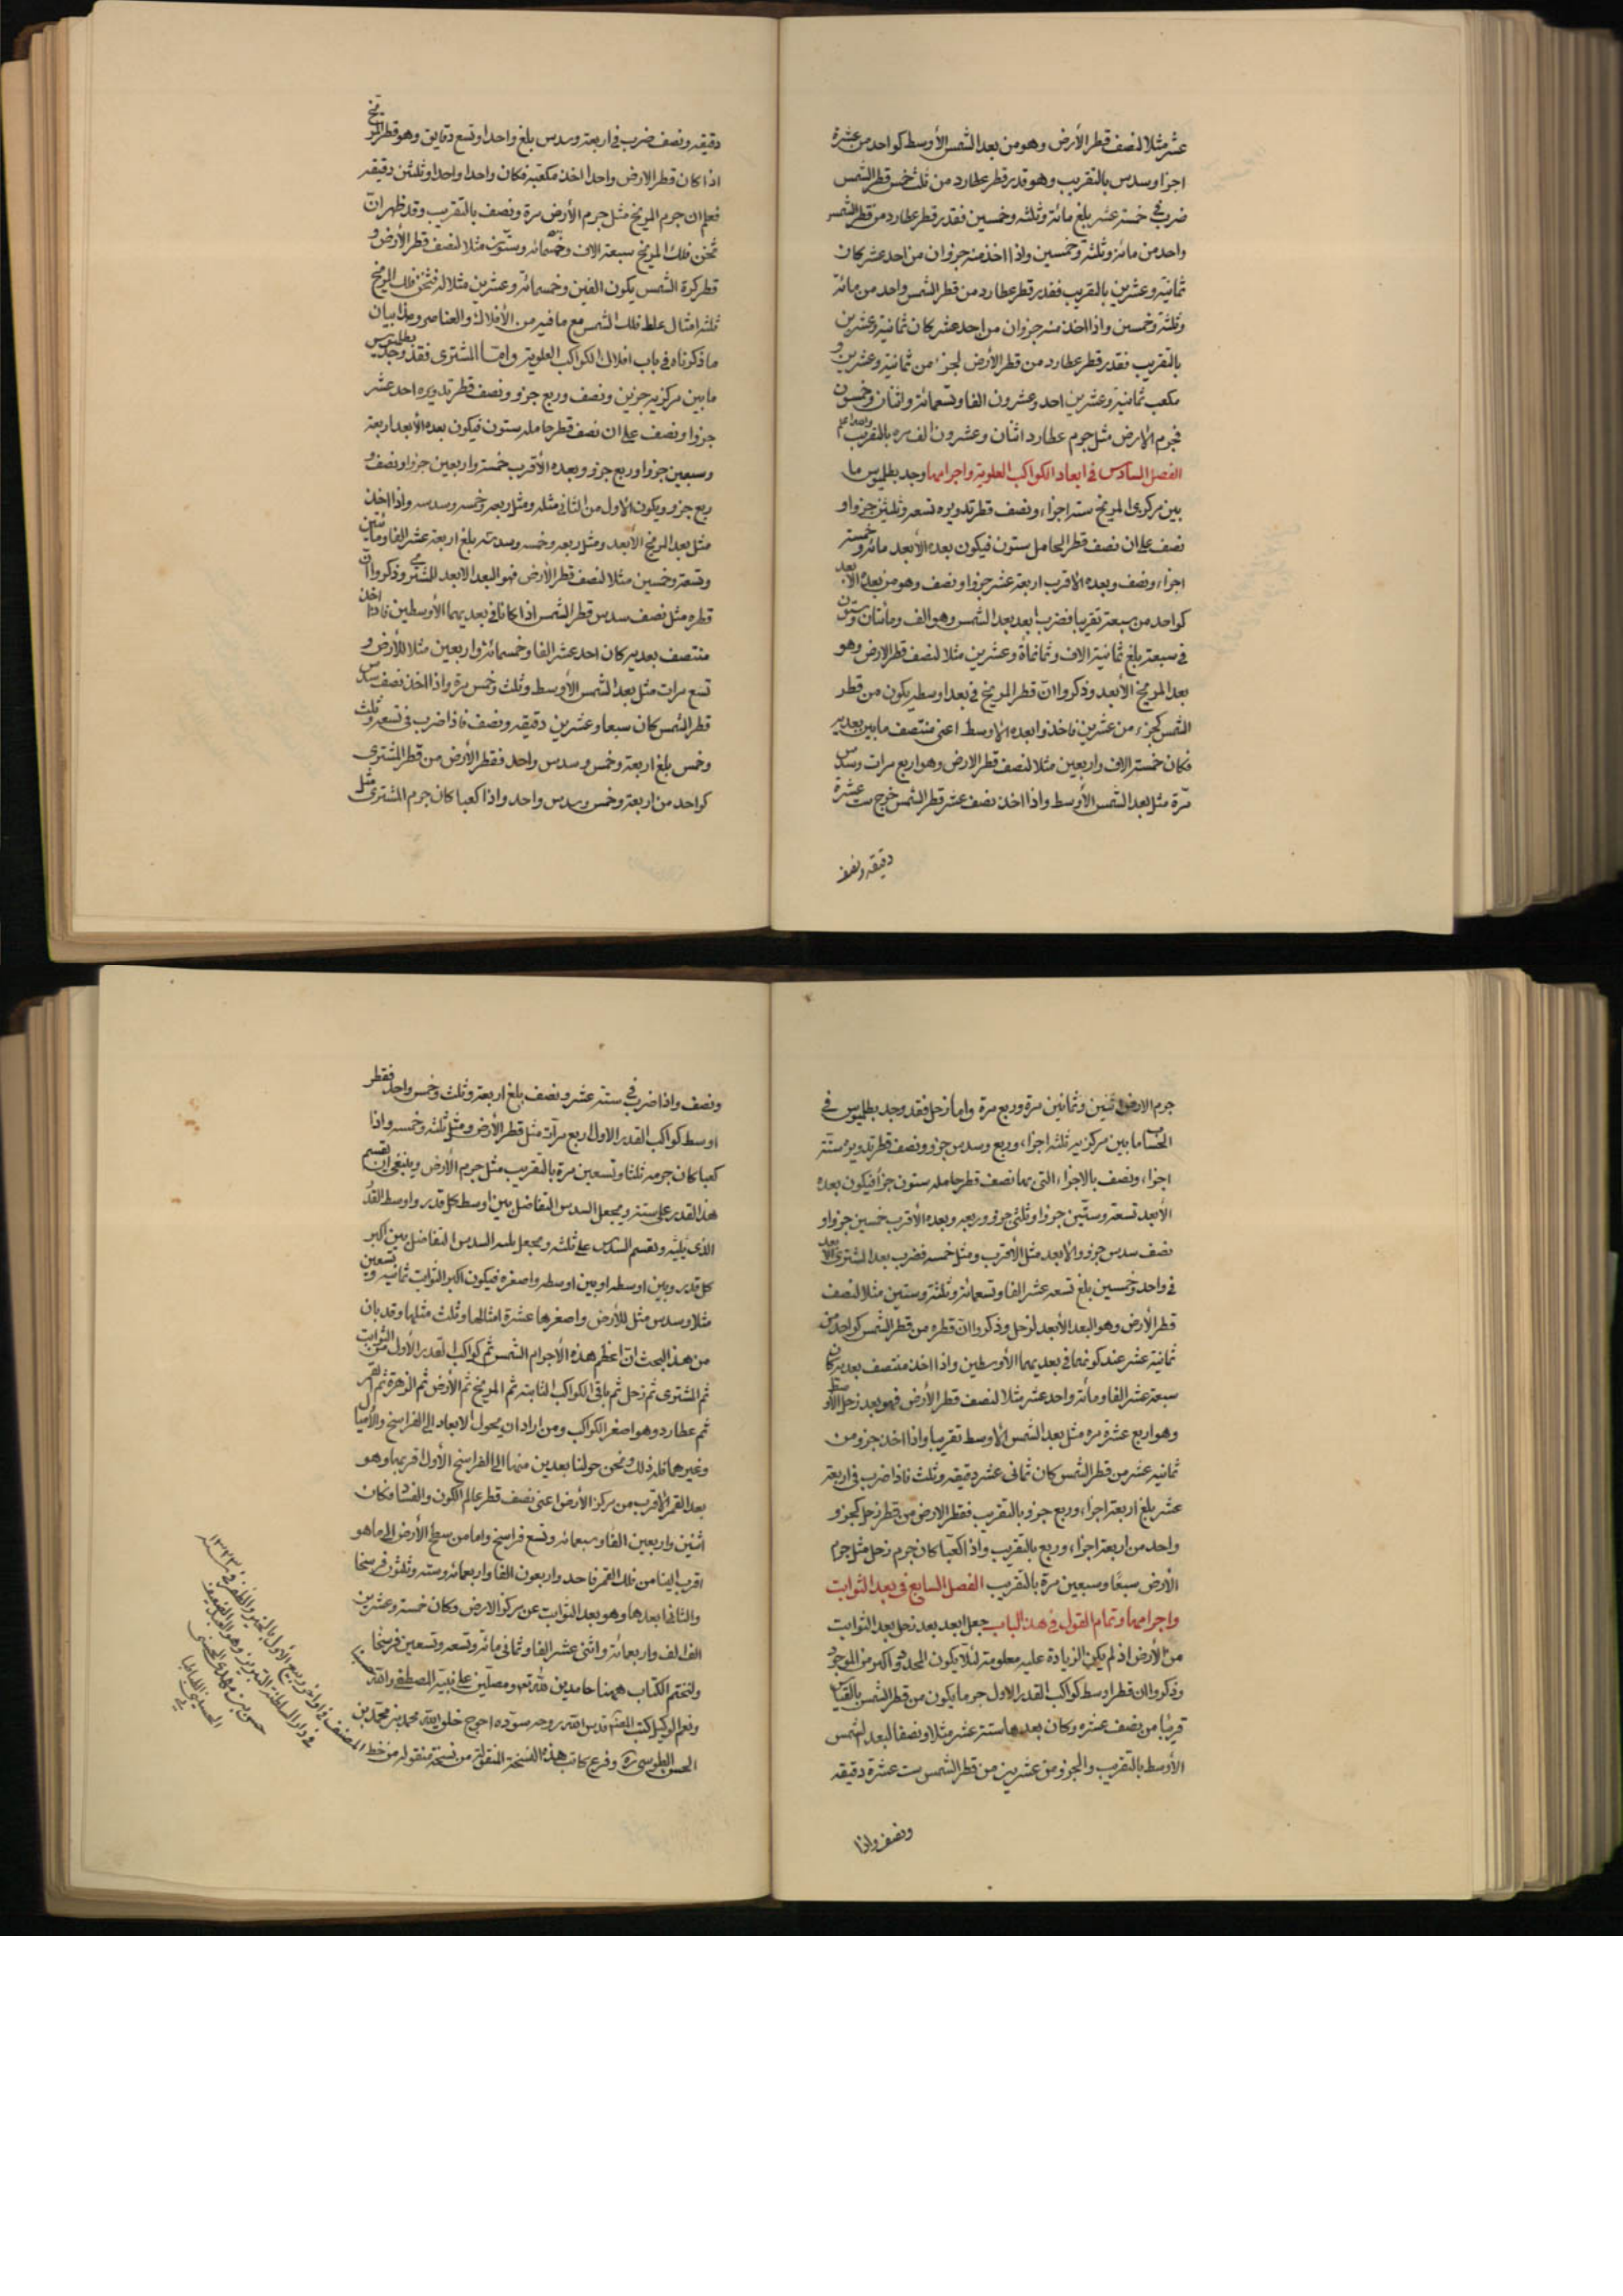 عشر مثلا لنصف قطر الأرض وهو من بعد الشمس الأوسط كواحد من عشرة
اجزا وسدس بالتقريب وهو قدر قطر عطارد من ثلث خمس قطر الشمس
ضرب في خمسة عشر بلغ مائة وثلثه وخمسين فقدر قطر عطارد من قطر الشمس
واحد من مائة وثلثة وخمسين واذا اخذ منه جزوان من احد عشر كان
ثمانية وعشرين بالتقريب فقدر قطر عطارد من قطر الشمس واحد من مائة
وثلثة وخمسين واذا اخذ منه جزوان من احد عشر كان ثمانية وعشرين
بالتقريب فقدر قطر عطارد من قطر الأرض لجزء من ثمانية وعشرين و
مكعب ثمانية وعشرين احد وعشرون الفا وتسعمائة واثنان وخمسون
فجرم الارض مثل جرم عطارد اثنان وعشرون الف مره بالتقريب
الفصل السادس في ابعاد الكواكب العلوية واجرامها وجد بطلميوس ما
بين مركزى المريخ ستة اجزاء ونصف قطر تدويره تسعه وثلثين جزوا و
نصف على ان نصف قطر الحامل ستون فيكون بعده الأبعد مائة وخمسة
اجزاء ونصف وبعده الاقرب اربعة عشر جزوا ونصف وهو من بعده الأبعد
كواحد من سبعة تقريبا فضرب ابعد بعد الشمس وهو الف ومائتان وستون
في سبعة بلغ ثمانية الاف وثمانماة وعشرين مثلا لنصف قطر الارض وهو
بعد المريخ الأبعد وذكروا ان قطر المريخ في بعد اوسطه يكون من قطر
الشمس كجزء من عشرين فاخذوا بعده الاوسط اعنى منتصف ما بين بعديه
فكان خمسة الاف واربعين مثلا لنصف قطر الارض وهو اربع مرات وسدس
مرة مثل بعد الشمس الأوسط واذا اخذ نصف عشر قطر الشمس خرج ست عشرة
دقيقه ونصف
دقيقه ونصف ضرب في اربعة وسدس بلغ واحدا وتسع دقايق وهو قطر المريخ
اذا كان قطر الارض واحدا اخذ مكعبه فكان واحدا واحدا وثلثين دقيقه
فعلم ان جرم المريخ مثل جرم الأرض مرة ونصف بالتقريب وقد ظهر ان
ثخن فلك المريخ سبعة الاف وخمسمائه وستون مثلا لنصف قطر الأرض و
قطر كرة الشمس يكون الفين وخمسمائة وعشرين مثلا له فثخن فلك المريخ
ثلثه امثال غلظ فلك الشمس مع ما فيه من الأفلاك والعناصر وهذا بيان
ما ذكرناه في باب افلاك الكواكب العلوية واما المشترى فقد وجد بطلميوس
ما بين مركزيه جزئين ونصف وربع جزو ونصف قطر تدويره احد عشر
جزوا ونصف على ان نصف قطر حامله ستون فيكون بعده الأبعد اربعة
وسبعين جزوا وربع جزو وبعده الأقرب خمسة واربعين جزوا ونصف و
ربع جزو ويكون الاول من الثانى مثله ومثل ربعه وخمسه وسدسه واذا اخذ
مثل بعد المريخ الأبعد ومثل ربعه وخمسه وسدسه بلغ اربعة عشر الفا ومائتين
وتسعة وخمسين مثلا لنصف قطر الأرض فهو البعد الابعد للمشترى وذكروا ان
قطره مثل نصف سدس قطر الشمس اذا كانا في بعديهما الأوسطين فاذا اخذ
منتصف بعديه كان احد عشر الفا وخمسمائة واربعين مثلا للأرض و
تسع مرات مثل بعد الشمس الأوسط وثلث وخمس مرة واذا اخذ نصف سدس
قطر الشمس كان سبعا وعشرين دقيقه ونصف فاذا ضرب في تسعه وثلث
وخمس بلغ اربعة وخمس وسدس واحد فقطر الأرض من قطر المشترى
كواحد من اربعة وخمس وسدس واحد واذا كعبا كان جرم المشترى مثل
جرم الارض اثنين وثمانين مرة وربع مرة واما زحل فقد وجد بطلميوس في
الحساب ما بين مركزيه ثلثه اجزاء وربع وسدس جزو ونصف قطر تدويره ستة
اجزاء ونصف بالاجزاء التى بها نصف قطر حامله ستون جزأ فيكون بعده
الأبعد تسعة وستين جزوا وثلثى جزو وربعه وبعده الأقرب خمسين جزوا و
نصف سدس جزو والابعد مثل الأقرب ومثل خمسه فضرب بعد المشترى الابعد
في واحد وخمسين بلغ تسعه عشر الفا وتسعمائة وثلثة وستين مثلا لنصف
قطر الأرض وهو البعد الأبعد لزحل وذكروا ان قطره من قطر الشمس كواحد من
ثمانية عشر عند كونهما في بعديهما الأوسطين واذا اخذ منتصف بعديه كان
سبعة عشر الفا ومائة واحد عشر مثلا لنصف قطر الأرض فهو بعد زحل الأوسط
وهو اربع عشرة مره مثل بعد الشمس الاوسط تقريبا واذا اخذ جزو من
ثمانيه عشر من قطر الشمس كان ثمانى عشر دقيقه وثلث فاذا ضرب في اربعة
عشر بلغ اربعة اجزاء وربع جزو بالتقريب فقطر الارض من قطر زحل كجزو
واحد من اربعة اجزاء وربع بالتقريب واذا كعبا كان جرم زحل مثل جرم
الأرض سبعا وسبعين مرة بالتقريب الفصل السابع في بعد الثوابت
واجرامها وتمام القول في هذا الباب جعل ابعد بعد زحل بعد الثوابت
من الأرض اذ لم يكن الزيادة عليه معلومة لئلا يكون المحدد اكبر من الموجود
وذكروا ان قطر اوسط كواكب القدر الاول جرما يكون من قطر الشمس بالقياس
قريبا من نصف عشره وكان بعدها ستة عشر مثلا ونصفا لبعد الشمس
الأوسط بالتقريب والجزو من عشرين من قطر الشمس ست عشرة دقيقه
ونصف واذا
ونصف واذا ضرب في ستة عشر ونصف بلغ اربعة وثلث وخمس واحد فقطر
اوسط كواكب القدر الاول اربع مرات مثل قطر الأرض ومثل ثلثه وخمسه واذا
كعبا كان جرمه ثلثا وتسعين مرة بالتقريب مثل جرم الأرض وينبغى ان يقسم
هذا القدر على ستة ويجعل السدس التفاضل بين اوسط كل قدر واوسط القدر
الذى يليه ويقسم السدس على ثلثه ويجعل ثلث السدس التفاضل بين اكبر
كل قدر وبين اوسطه او بين اوسطه واصغره فيكون اكبر الثوابت ثمانيه وتسعين
مثلا وسدس مثل للأرض واصغرها عشرة امثالها وثلث مثلها وقد بان
من هذا البحث ان اعظم هذه الأجرام الشمس ثم كواكب القدر الأول من الثوابت
ثم المشترى ثم زحل ثم باقى الكواكب الثابته ثم المريخ ثم الأرض ثم الزهرة ثم القمر
ثم عطارد وهو اصغر الكواكب ومن اراد ان يحول الابعاد الى الفراسخ والأميال
وغيرهما فله ذلك ونحن حولنا بعدين منها الى الفراسخ الأول اقربها وهو
بعد القمر الاقرب من مركز الأرض اعنى نصف قطر عالم الكون والفساد فكان
اثنين واربعين الفا وسبعمائه وتسع فراسخ واما من سطح الأرض الى ما هو
اقرب الينا من فلك القمر فاحد واربعون الفا واربعمائه وسته وثلثون فرسخا
والثانى ابعدها وهو بعد الثوابت عن مركز الارض وكان خمسة وعشرين
الف الف واربعمائة واثنى عشر الفا وثمانى مائة وتسعه وتسعين فرسخا
ولنختم الكتاب ههنا حامدين لله تعه ومصلين على نبيه المصطفى واله حسبنا
ونعم الوكيل كتب المصنف قدس الله روحه سوده احوج خلق الله محمد بن محمد بن
الحسن الطوسى ره وفرغ كاتب هذه النسخة المنقولة من نسخة منقوله من خط المصنف
في اواخر ربيع الأول
في دار السلطنه التبريز وهو العبد الضعيف
حسن بن محمد على الحسنى
الحسينى الطباطبا